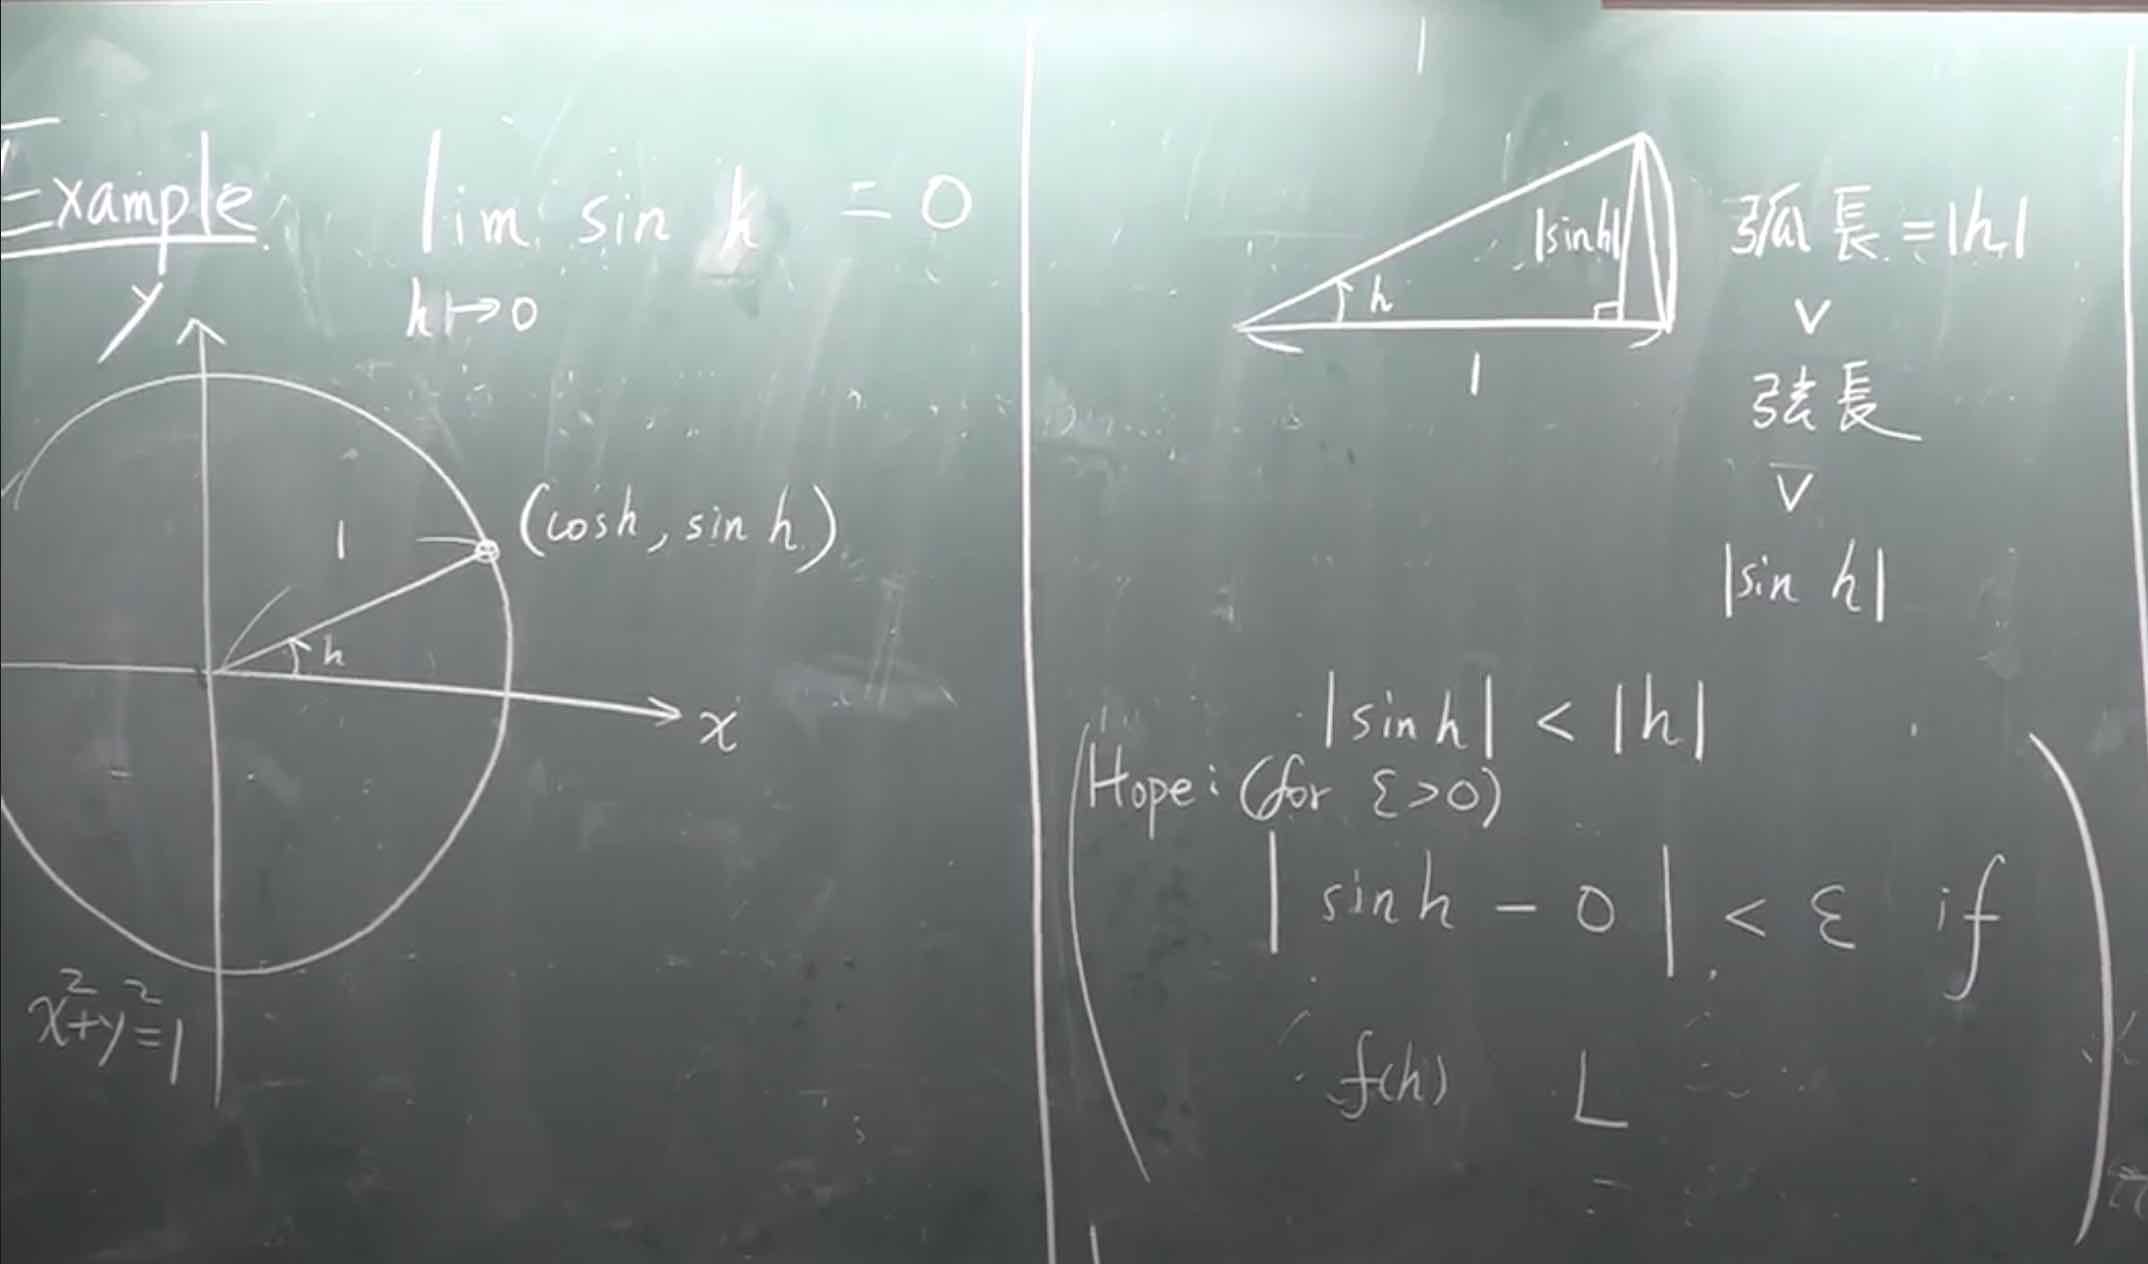 Example lim sin h = 0
h↦0
y
1
(cosh, sin h)
h
x
x²+y²=1
|sinh|
h
1
弧長=|h|
∨
弦長
∨
|sin h|
|sinh| < |h|
Hope: (for ε>0)
| sinh - 0 | < ε if
f(h) L